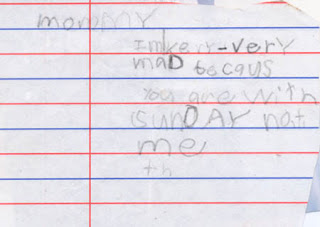 mommy
I'm very-very
maD becaus
you are with
sunDAY not
me
th